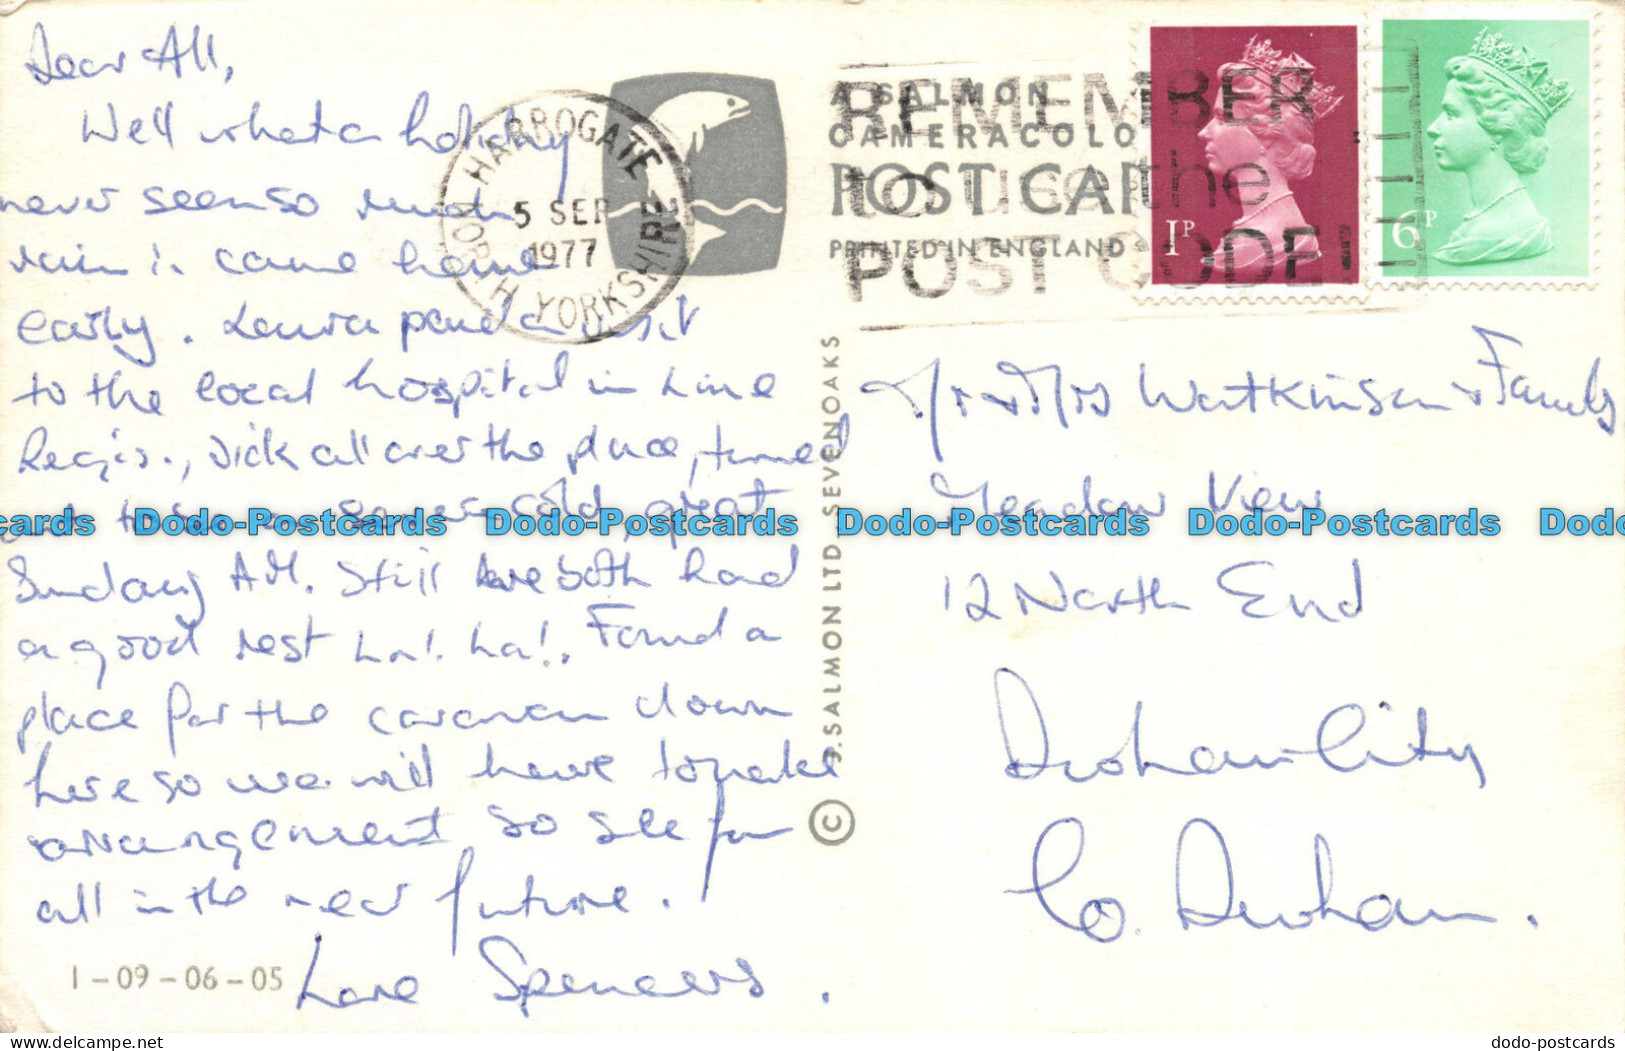 Dear All,
Well what a holiday
never seen so much
rain i. came home
early. Laura paid a visit
to the local hospital in Lime
Regis., sick all over the place, turned
out to be a severe cold, great
Sunday A.M. Still we both had
a good rest ha! ha!. Found a
place for the caravan down
here so we will have to make
arrangement so see you
all in the near future.
Love Spencers.
1-09-06-05
HARROGATE
5 SEP
1977
NORTH YORKSHIRE
A SALMON
CAMERACOLO
POST CAR
PRINTED IN ENGLAND
REMEMBER
to use the
POST CODE
1P
6P
© J. SALMON LTD SEVENOAKS
Mr & Mrs Watkinson & Family
Meadow View
12 North End
Durham City
Co. Durham.
Dodo-Postcards Dodo-Postcards Dodo-Postcards Dodo-Postcards
www.delcampe.net
dodo-postcards